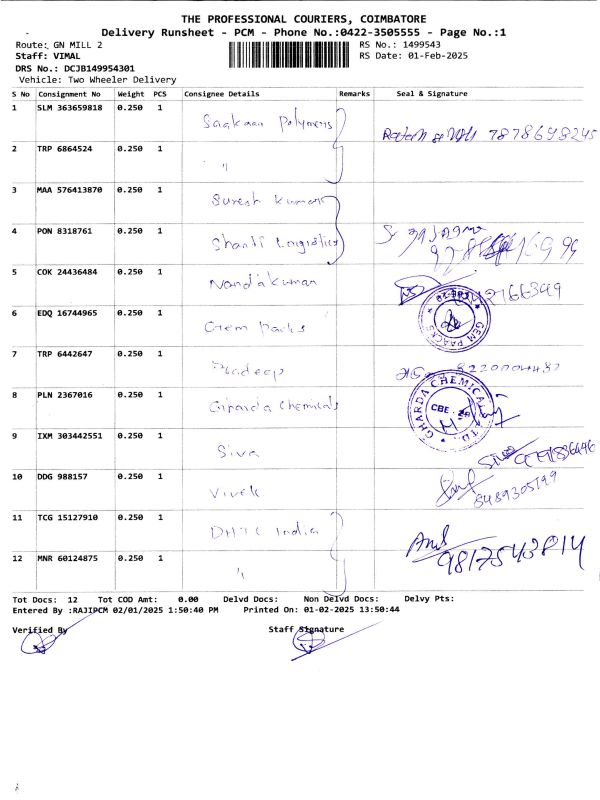 THE PROFESSIONAL COURIERS, COIMBATORE
Delivery Runsheet - PCM - Phone No.:0422-3505555 - Page No.:1
Route: GN MILL 2
RS No.: 1499543
Staff: VIMAL
RS Date: 01-Feb-2025
DRS No.: DCJB149954301
Vehicle: Two Wheeler Delivery
S No Consignment No Weight PCS Consignee Details Remarks Seal & Signature
1 SLM 363659818 0.250 1 Saakaan Polymers 7878648245
2 TRP 6864524 0.250 1 "
3 MAA 576413870 0.250 1 Suresh Kumar
4 PON 8318761 0.250 1 Shanti Logistics
5 COK 24436484 0.250 1 Nandakumar
6 EDQ 16744965 0.250 1 Gem Packs GEM PAACKS
7 TRP 6442647 0.250 1 Pradeep
8 PLN 2367016 0.250 1 Gharda Chemicals GHARDA CHEMICALS LTD. CBE
9 IXM 303442551 0.250 1 Siva Siva
10 DDG 988157 0.250 1 Vivek 8489305199
11 TCG 15127910 0.250 1 DHTC India
12 MNR 60124875 0.250 1 " 9817543814
Tot Docs: 12 Tot COD Amt: 0.00 Delvd Docs: Non Delvd Docs: Delvy Pts:
Entered By :RAJIPCM 02/01/2025 1:50:40 PM Printed On: 01-02-2025 13:50:44
Verified By Staff Signature